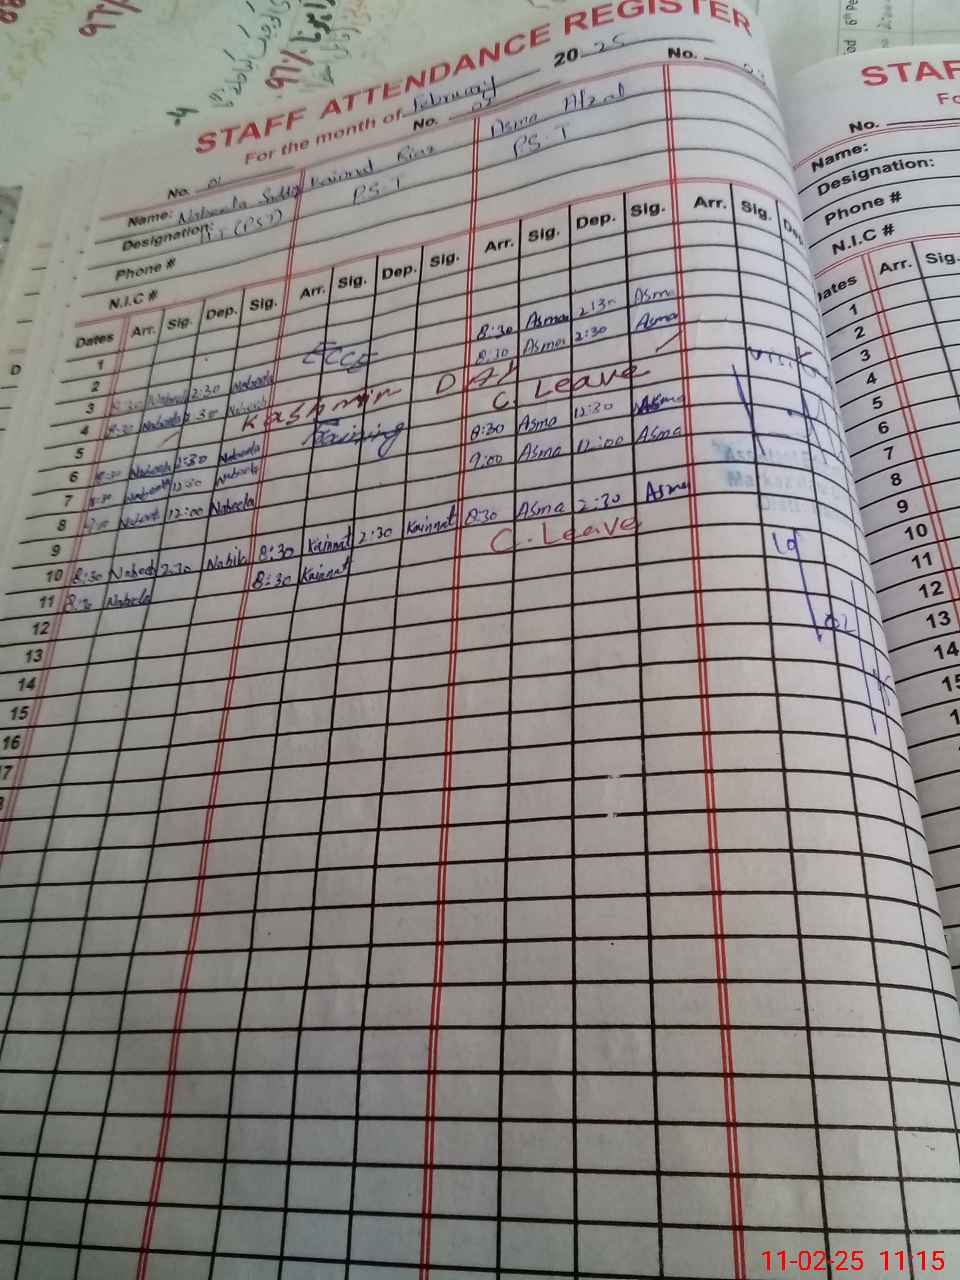 STAFF ATTENDANCE REGISTER
For the month of February 2025
No. 01 No. 02 No. 03
Name: Nabeela Kainnat Riaz Asma Afzal
Designation: (PST) P.S.T P.S.T
Phone #
N.I.C #
Dates Arr. Sig. Dep. Sig. Arr. Sig. Dep. Sig. Arr. Sig. Dep. Sig. Arr. Sig. Dep.
1
2
3 8:30 Nabeela 2:30 Nabeela ECCE 8:30 Asma 2:30 Asma
4 8:30 Nabeela 2:30 Nabeela 8:30 Asma 2:30 Asma
5 Kashmir Day
6 8:30 Nabeela 2:30 Nabeela Training C. Leave
7 8:30 Nabeela 12:30 Nabeela 8:30 Asma 12:30 Asma
8 9:00 Nabeela 12:00 Nabeela 9:00 Asma 12:00 Asma
9
10 8:30 Nabeela 2:30 Nabila 8:30 Kainnat 2:30 Kainnat 8:30 Asma 2:30 Asma
11 8:30 Nabeela 8:30 Kainnat C. Leave
12
13
14
15
16
STAF
No.
Name:
Designation:
Phone #
N.I.C #
Dates Arr. Sig.
1
2
3
4
5
6
7
8
9
10
11
12
13
14
15
11-02-25 11:15